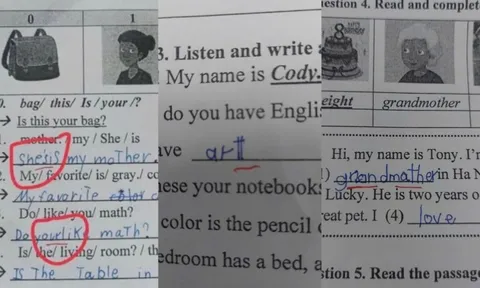 0 1
bag/ this/ Is / your /?
→ Is this your bag?
mother. / my / She / is
→ she'sis my moTher.
My/ favorite/ is/ gray./ co
→ My favorite co
Do/ like/ you/ math?
→ Do yourlik math?
Is/ the/ living/ room? / th
→ Is The Table in
3. Listen and write a
My name is Cody.
do you have Engli
ave art
ese your notebooks
color is the pencil c
edroom has a bed, a
estion 4. Read and complete
8
eight grandmother
Hi, my name is Tony. I'm
) grandmather in Ha N
Lucky. He is two years o
reat pet. I (4) love
stion 5. Read the passage